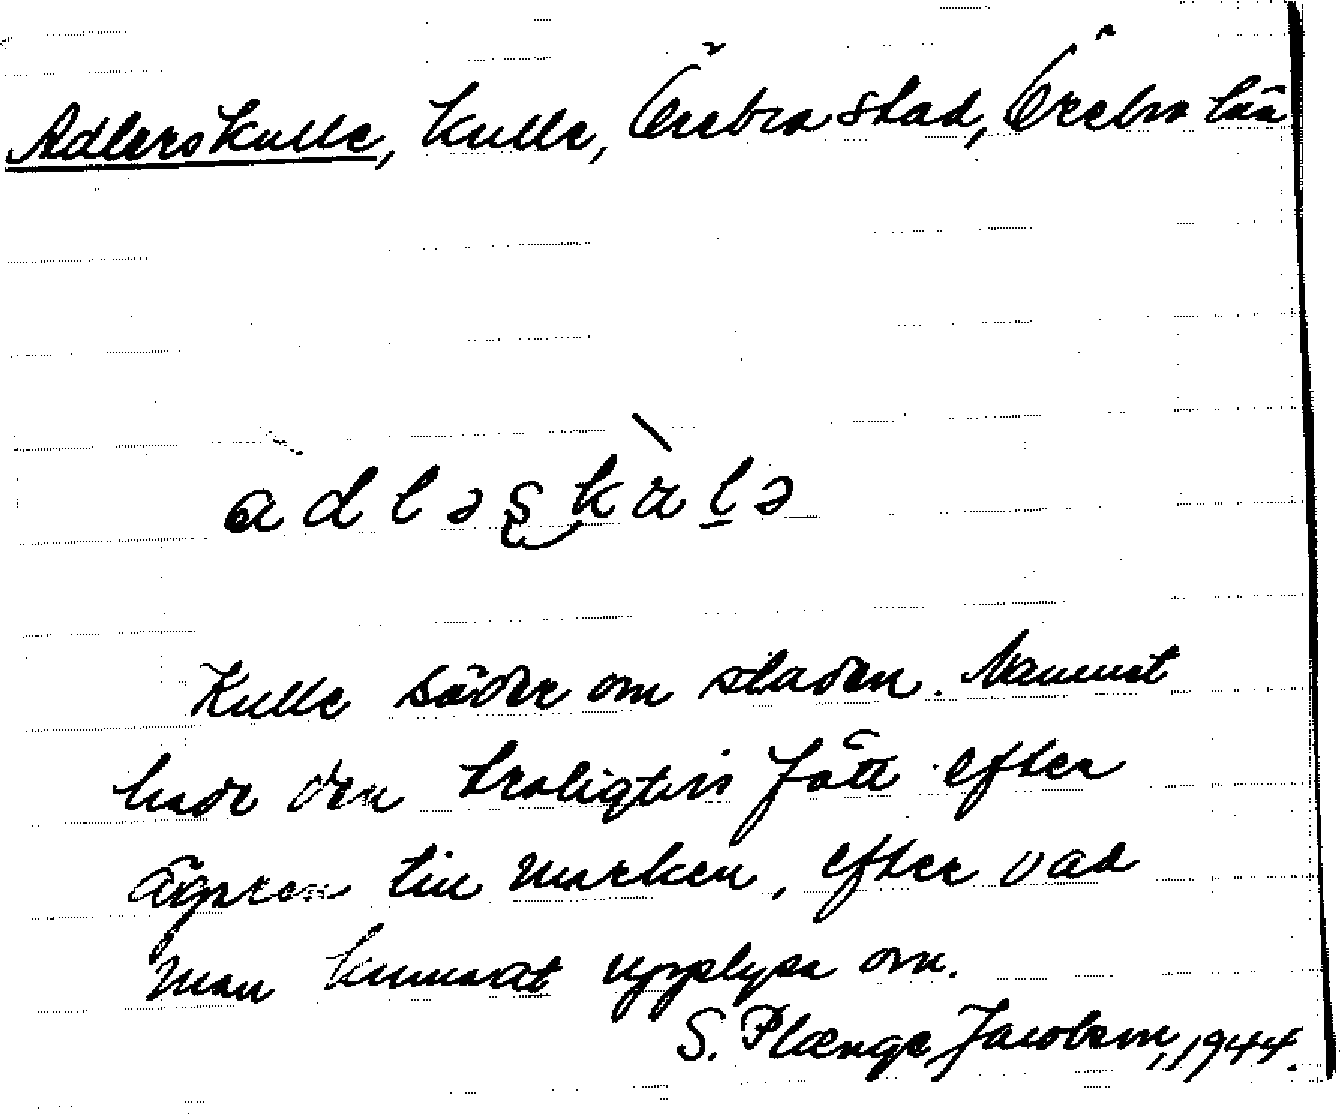 Adlerskulle, kulle, Örebro stad, Örebro län
adləskulə
Kulle söder om staden. Namnet
hade den troligtvis fått efter
ägaren till marken, efter vad
man kunnat upplysa om.
S. Plænge Jacobson, 1944.